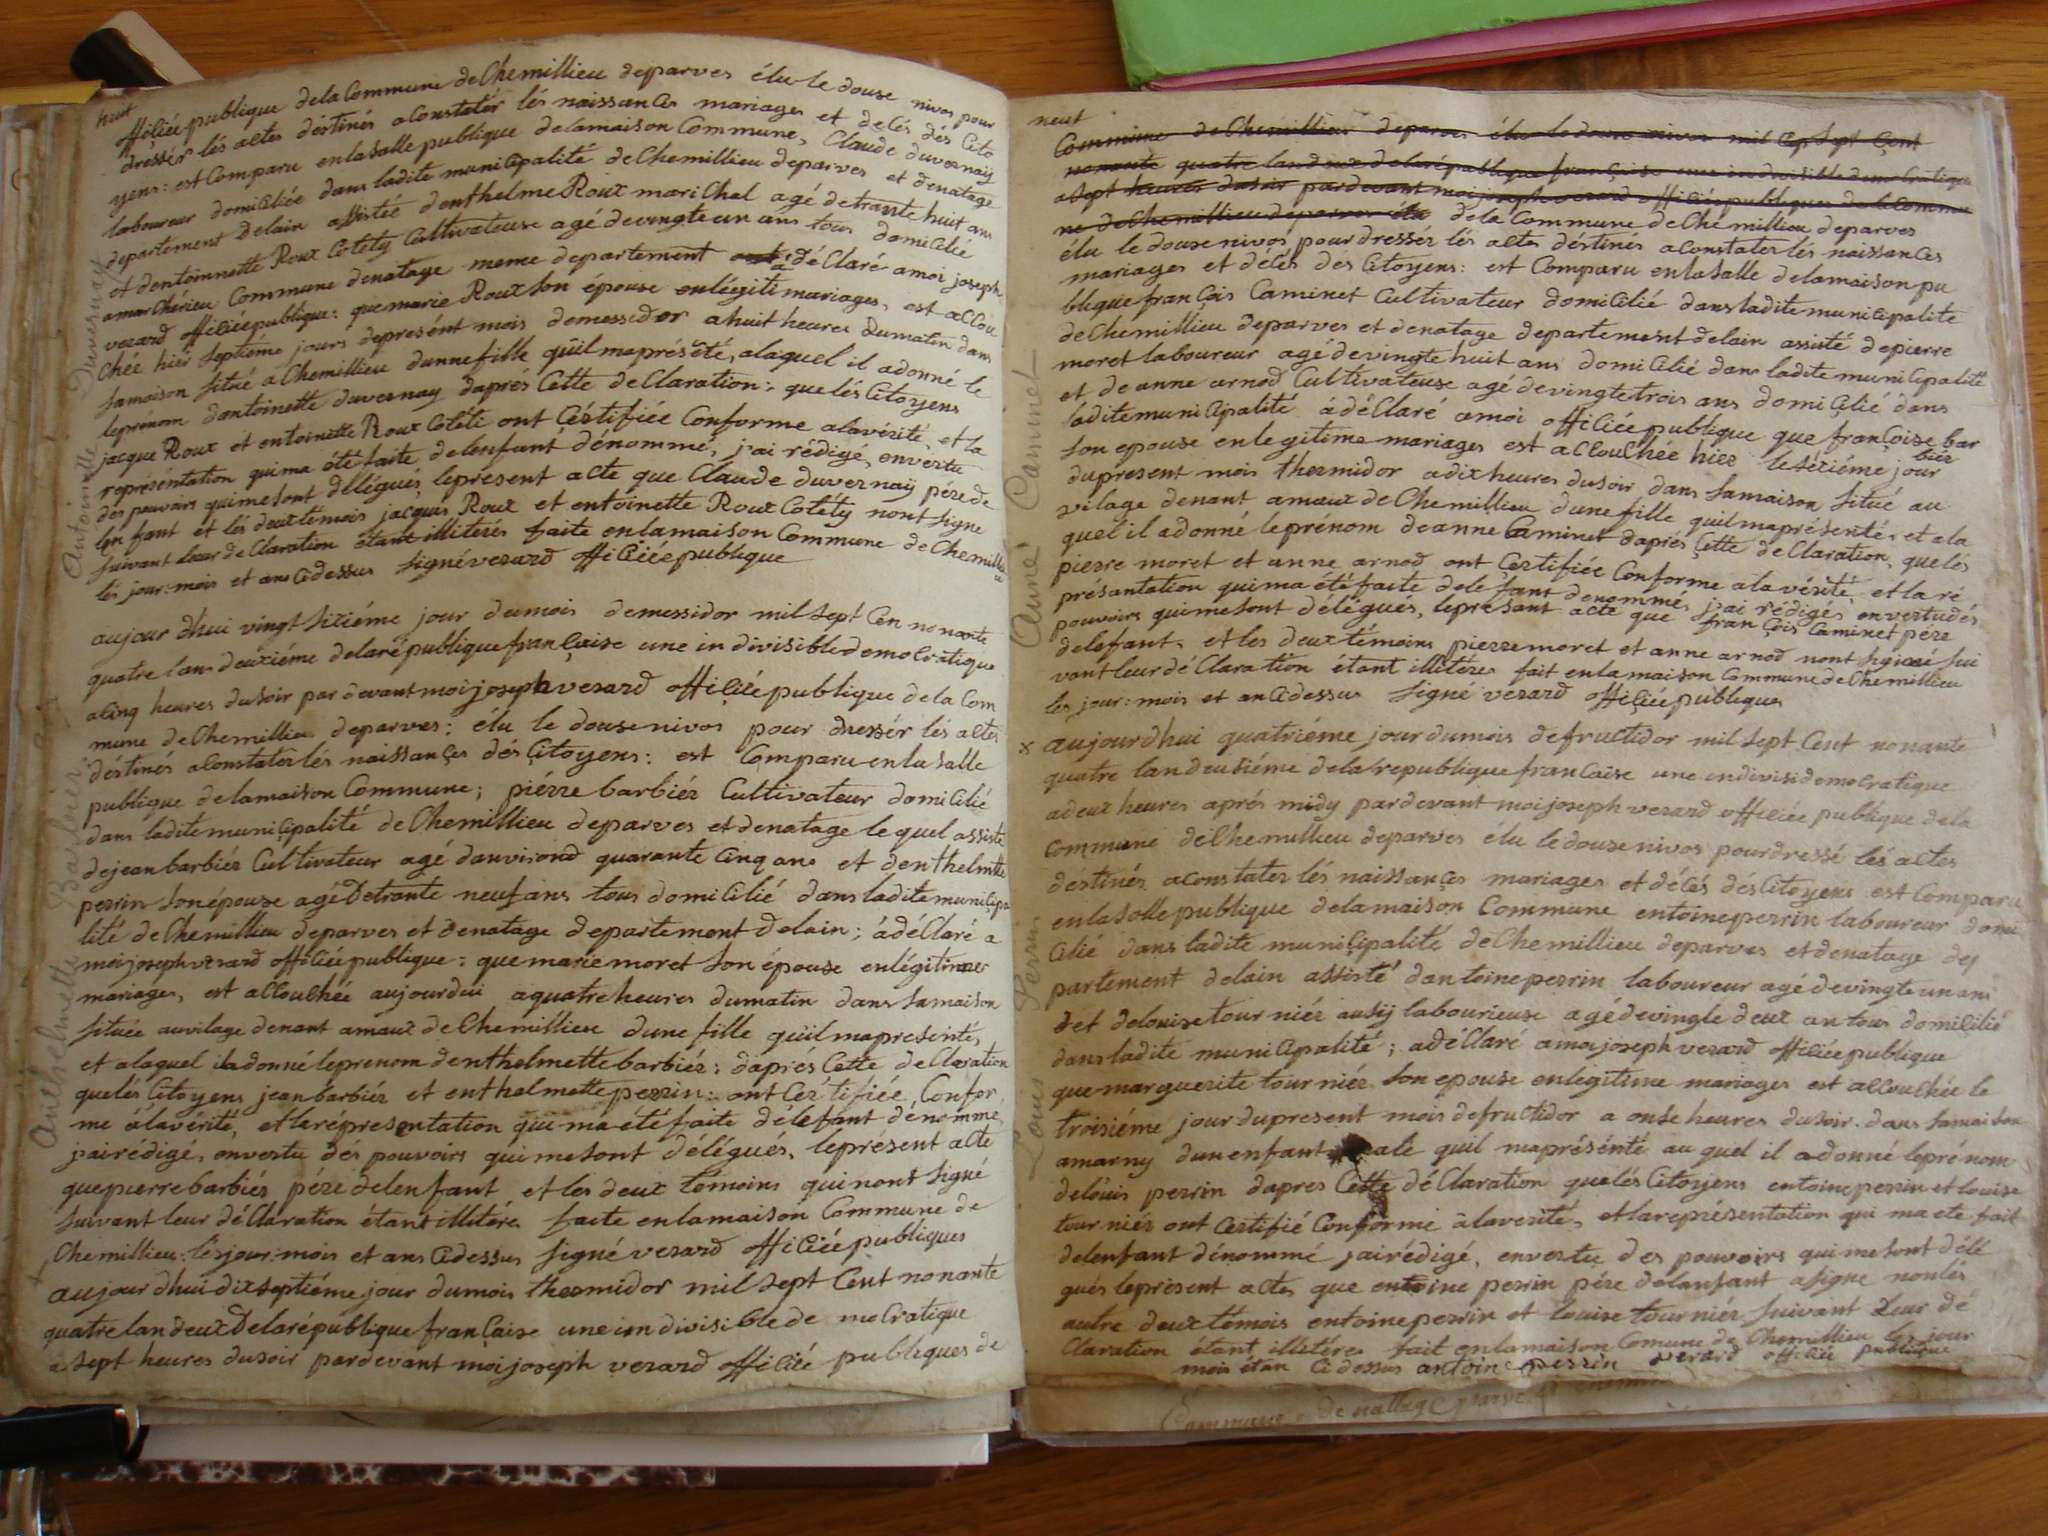 huit
officiée publique de la Commune de Chemillieu deparves élu le douse nivos pour
dressér lés actes déstinés a Constatér lés naissances mariages et decés dés Cito
yens : est Comparu en la salle publique de la maison Commune, Claude duvernay
laboureur domicilié dans ladite municipalité de Chemillieu deparves et denatage
departement Delain assistée denthelme Roux marichal agé de trante huit ans
et dentoinnette Roux Cotéty Cultivateuse agé de vingte un ans tous domicilié
a marchérieu Commune denatage meme departement a déClaré amoi joseph
verard officiée publique : que marie Roux son épouse en légitimariages, est accou
chée hiér septiéme jours depresént mois de messidor a huit heures dumatin dans
samaison situé a Chemillieu dunne fille quil maprésété, alaquel il adonné le
leprénom dantoinette duvernay daprés Cette declaration : que lés Citoyens
jacque Roux et entoinette Roux Cotéti ont Céstifiée Conforme alavérité, et la
représentation qui ma été faite delenfant dénommé, j'ai rédigé, envértu
dés pouvoirs quimesont délégués, lepresent acte que Claude duvernaÿ pére de
len fant et les deux témois jacques Roux et entoinette Roux Cotéty nont signe
suivant leur de Claration étant illiterés faite en lamaison Commune de Chemillieu
lés jour : mois et ans cidessus signé verard officiée publique
Antoinette Duvernay
aujour dhui vingt sixiéme jour dumois demessidor mil sept Cen nonante
quatre lans deuxiéme delarépublique française une in divisible democratique
acinq heures dusoir par devant moi joseph verard officiée publique de la Com
mune de Chemillieu deparves : élu le douse nivos pour dressér lés actes
déstinés a Constater lés naissances dés Citoyens : est Comparu en la salle
publique de lamaison Commune ; piérre barbiér Cultivateur domicilié
dans ladite municipalité de Chemillieu deparves et denatage le quel assisté
dejean barbiér Cultivateur agé danvirond quarante Cinq ans et denthelmette
perrin son épouse agé Detrante neuf ans tous domicilié dans ladite municipa
lité de Chemillieu deparves et denatage departement delain ; á déClaré a
moi joseph verard officiée publique : que marie moret son épouse enlégitimes
mariages, est accouchée aujourdui aquatre heures dumatin dans samaison
située auvilage denant amaux de Chemillieu dune fille quil mapresenté,
et alaquel iladonné leprenom denthelmette barbiér : daprés Cette declaration
quelés Citoyens jean barbiér et enthelmette perrin : ont Céztifiée Confor
me álavérité, et larépresentation qui ma été faite délefant dénommé,
j'ai rédigé, envertu dés pouvoirs qui mesont délégués, leprésent acte
que pierre barbiér pére delenfant et les deux témoins qui nont signé
suivant leur déClaration étant illitére faite en lamaison Commune de
Chemillieu : lés jour : mois et ans Cidessus signé verard officiée publiques
Anthelmette Barbier
aujour dhui dix septiéme jour dumois thermidor mil sept Cent nonante
quatre lan deux De larépublique française une in divisible de mocratique
a sept heures dusoir pardevant moi joseph verard officiée publiques de
neuf
Commune de Chemillieu deparves élu le douse nivos mil sept Cent
nonante quatre lan deux de larépublique françoise une indivisible democratique
a sept heures dusoir pardevant moi joseph verard officiée publiques de la Commu
ne de Chemillieu deparves élu de la Commune de Chemillieu deparves
élu le douse nivos pour dressér lés actes déstinés aconstater lés naissances
mariages et décés des Citoyens : est Comparu en la salle de lamaison pu
blique françois Caminet Cultivateur domicilié dans ladite municipalite
de Chemillieu deparves et denatage departement delain assisté depierre
moret laboureur agé devingte huit ans domicilié dans ladite municipalité
et de anne arnod Cultivateuse agé devingte trois ans domicilié dans
ládite municipalité á déClaré amoi officiée publique que françoise bar
biér
son epouse en legitime mariages est accouchée hiér le séxiéme jour
du présent mois thermidor adix heures dusoir dans samaison situé au
vilage denant amaux de Chemillieu dune fille quil maprésenté, et ala
quel il adonné leprénom deanne Caminet daprés Cette declaration, que lés
pierre moret et anne arnod ont Céstifiée Conforme ala vérité, et la ré
présantation qui ma été faite dele fant dénommé, j'ai rédigés envertu dés
pouvoirs qui mesont délégués, lepresant acte que françois Caminet pére
delefant, et les deux témoins pierre moret et anne arnod nont signé sui
vant leur dé Claration étant illitére fait en lamaison Commune de Chemillieu
lés jour : mois et an Cidessus signé verard officiée publiques
Anne Caminet
x aujourdhui quatriéme jour dumois defructidor mil sept Cent nonante
quatre lan deusiéme dela republique française une indivisi democratique
adeux heures aprés midy pardevant moi joseph verard officiée publique dela
Commune de Chemillieu deparves élu le douse nivos pour dressé lés actes
déstinés aconstater lés naissances mariages et décés dés Citoyens est Comparu
en la salle publique delamaison Commune entoine perrin laboureur domi
cilié dans ladite municipalité de Chemillieu deparves et denatage de
partement delain assisté dantoine perrin laboureur agé devingte un ans
et delouise tourniér ausij labourieuse agé devingte deux an tous domicilié
dans ladite municipalité ; adéClaré amoi joseph verard officiée publique
que marguerite tourniér son epouse enlégitime mariages est accouchée le
troisiéme jour dupresent mois defructidor a onse heures dusoir dans samaison
amarny dun enfant male quil maprésénté au quel il adonné leprénom
delouis perrin dapres Cette déClaration quelés Citoyens entoine perrin et louise
tourniér ont Certifié Conforme alaverité, et la représentation qui ma eté fait
delenfant dénommé jai rédigé, envertu des pouvoirs qui mesont délé
gués leprésent actes que entoine perrin pére delanfant asigne nonlés
autre deux témois entoine perrin et louise tourniér suivant leur dé
Claration étant illitére fait en lamaison Comune de Chemillieu les jour
mois étan Cidessus antoine perrin verard officiée publique
Louis Perrin